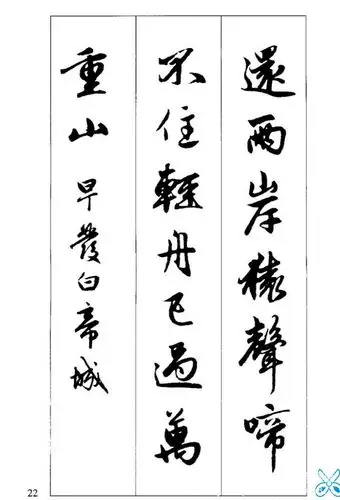 還兩岸猿聲啼
不住輕舟已過萬
重山 早發白帝城
22